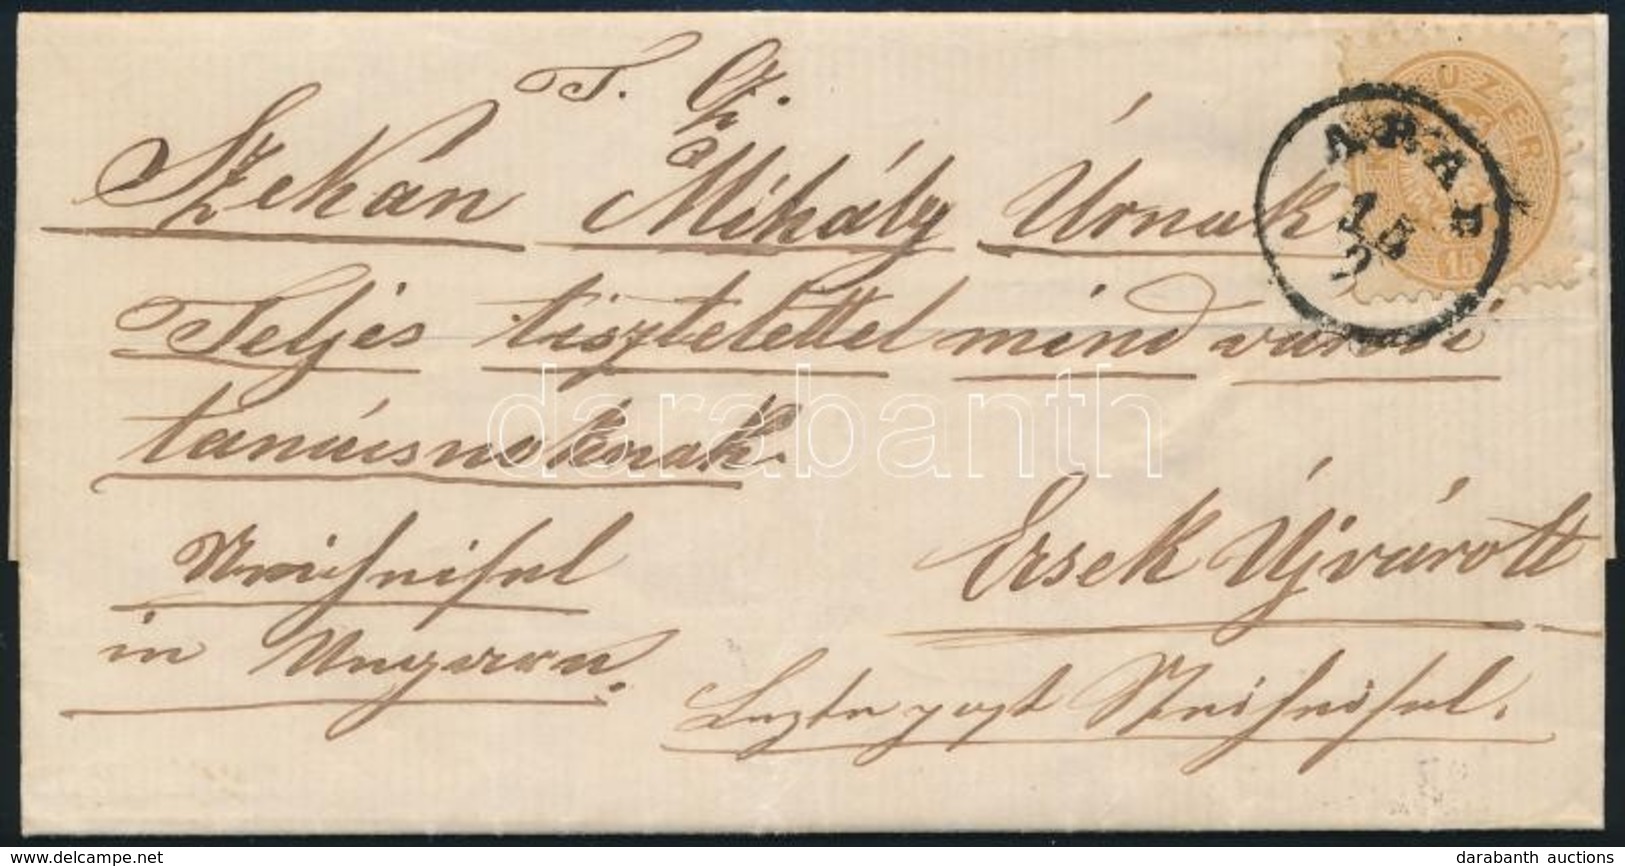 T. Cz.
Szekán Mihály Úrnak
Teljes tisztelettel mind városi
tanácsnokénak.
Ersek Újvárott
Neuhäusel
in Ungarn.
Letzte post Neuhäusel.
ARAD
15
2
KREUZER
15
darabanth
darabanth auctions